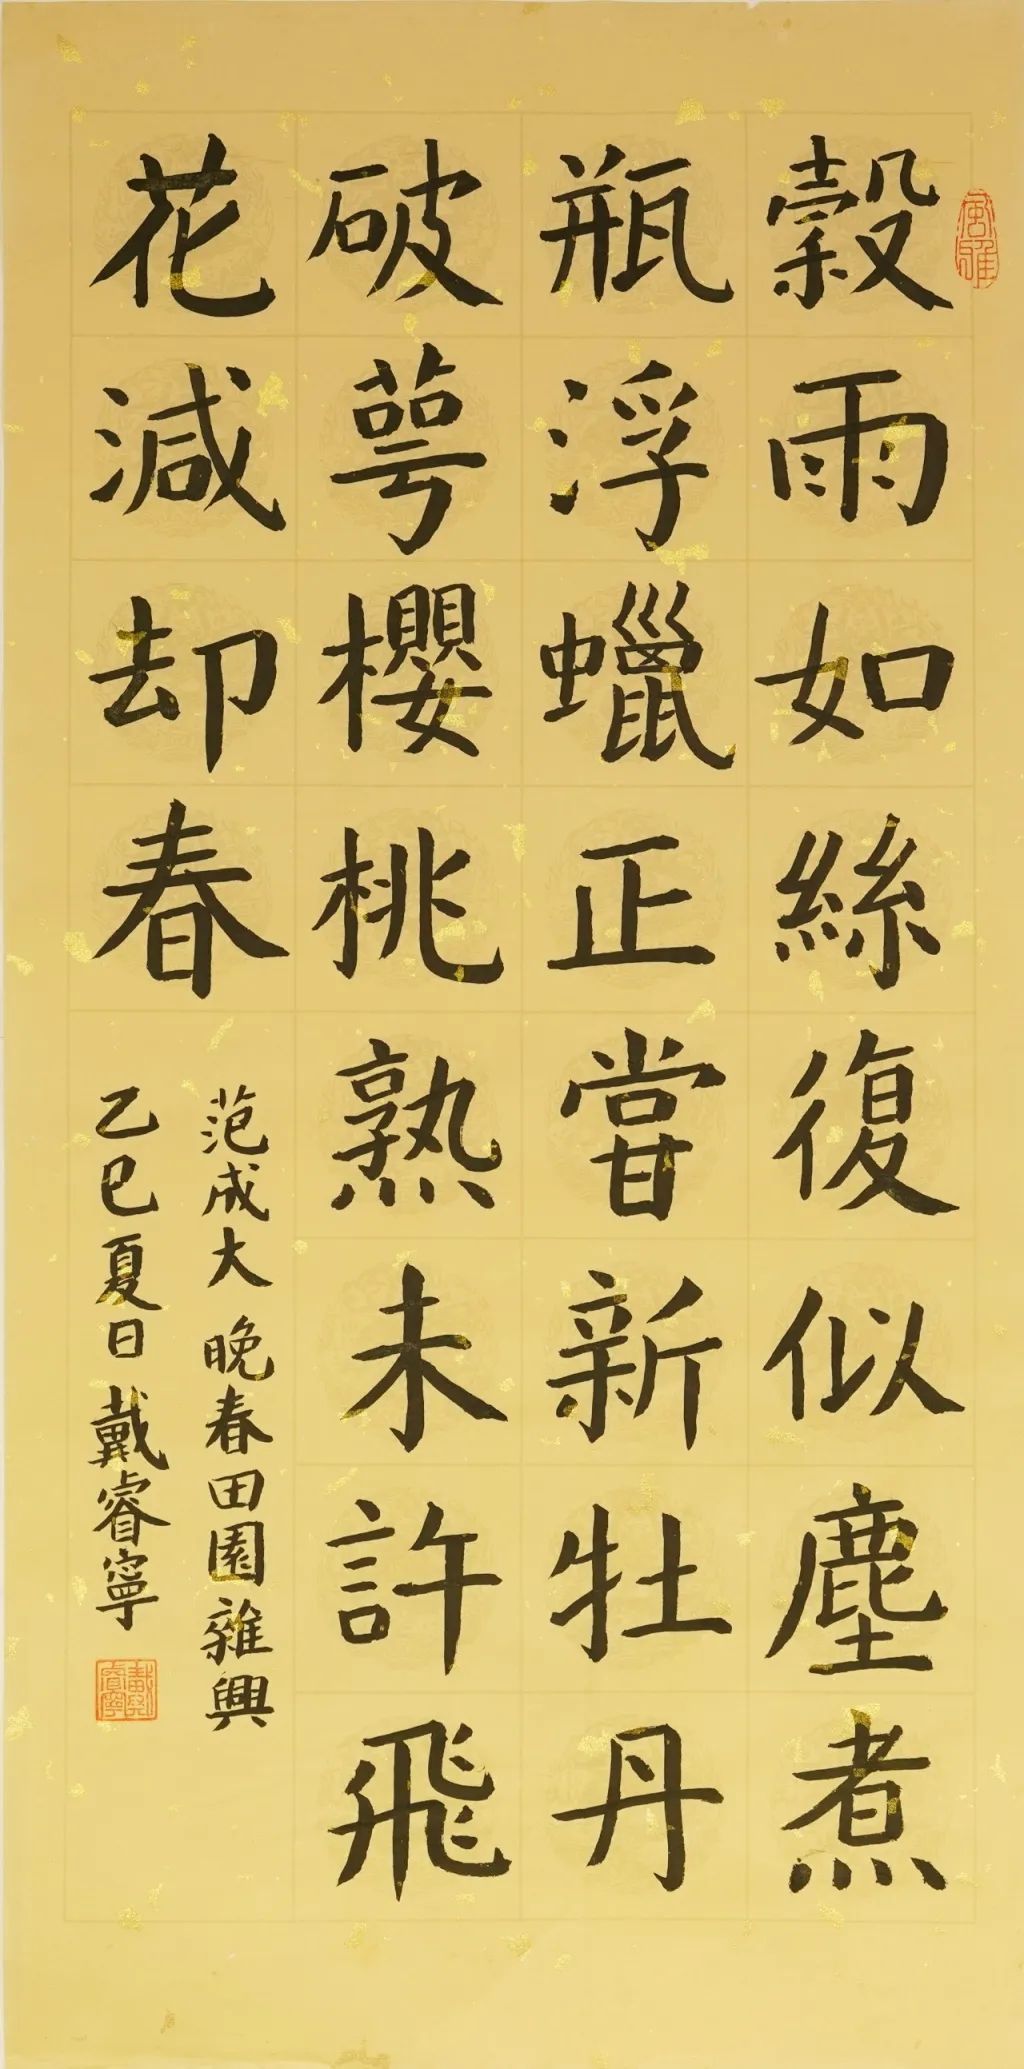 穀雨如絲復似塵煮
瓶浮蠟正嘗新牡丹
破萼櫻桃熟未許飛
花減却春
范成大晚春田園雜興
乙巳夏日戴睿寧
風雅
戴睿寧